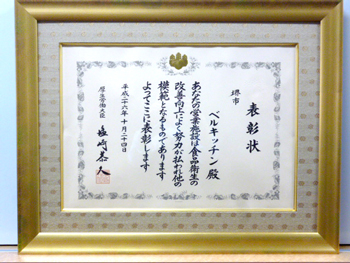 表彰状
堺市
ベルキッチン殿
あなたの営業施設は食品衛生の
改善向上によく努力が払われ他の
模範となるものであります
よってここに表彰します
平成二十六年十月二十四日
厚生労働大臣
塩崎恭久